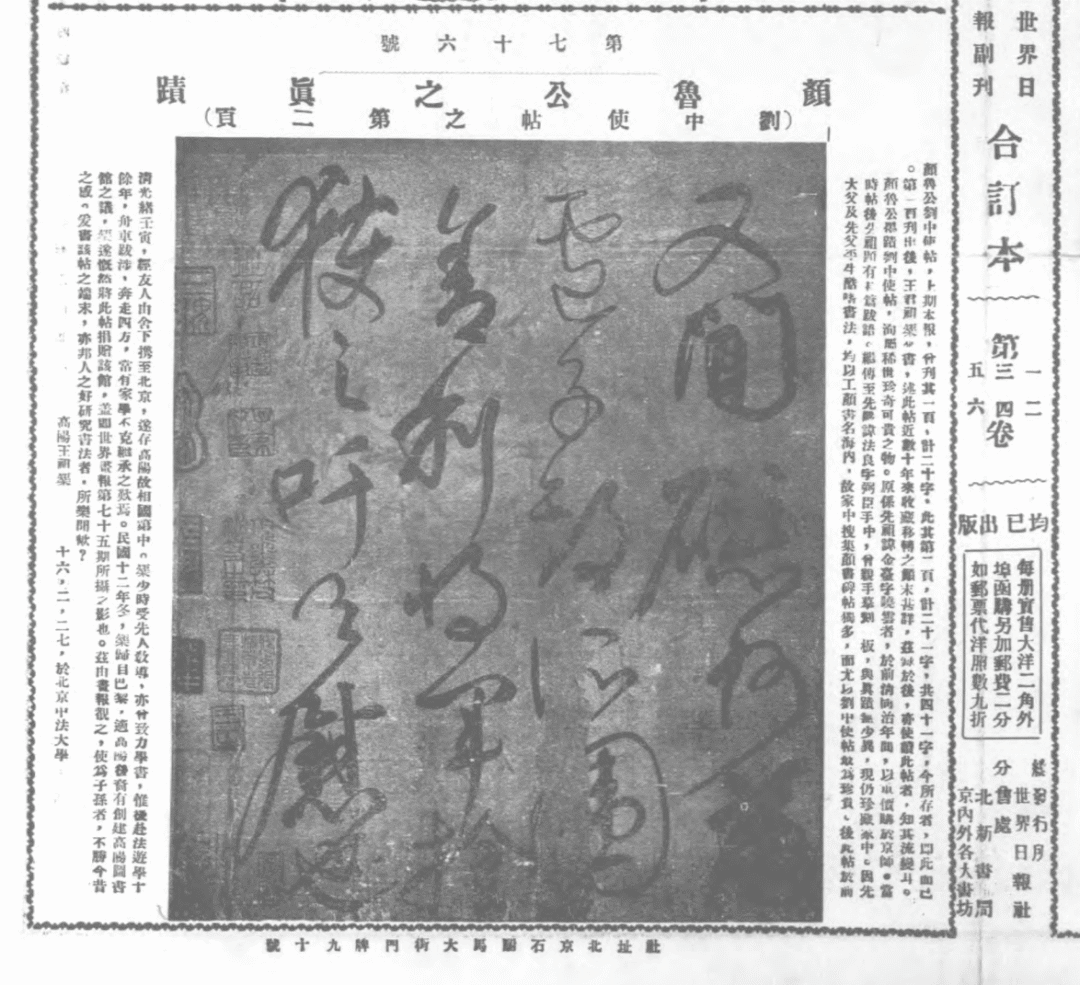 世界日報副刊
合訂本
第一二三四五六卷
均已出版
每册實售大洋二角外
埠函購另加郵費二分
如郵票代洋照數九折
發行所
世界日報社
分售處
北新書局
京內外各大書坊
第七十六號
顏魯公之眞蹟
(劉中使帖之第二頁)
顏魯公劉中使帖,上期本報,曾刊其一頁,計二十字。此其第二頁,計二十一字,共四十一字,今所存者,卽此而已
。第一頁刊出後,王君祖榘來書,述此帖近數十年來收藏移轉之顚末甚詳,茲錄於後,亦使讀此帖者,知其流變耳。
顏魯公眞蹟劉中使帖,洵屬稀世珍奇可貴之物。原係先祖諱金臺字曉雲者,於前淸同治年間,以重價購於京師。當
時帖後先祖題有跋語。繼傳至先嚴諱法良字弼臣手中,曾親手摹刻板,與眞蹟無少異,現仍珍藏家中。因先
大父及先父平生酷嗜書法,均以工顏書名海內,故家中搜集顏書碑帖獨多,而尤以劉中使帖最爲珍貴。後此帖於前
又聞礠州為
盧子期所圍
舍利將軍擒
獲之吁足慰也
淸光緒壬寅,經友人由舍下携至北京,遂存高陽故相國第中。榘少時受先人敎導,亦曾致力學書,惟後赴法遊學十
餘年,舟車跋涉,奔走四方,常有家學不克繼承之歎焉。民國十二年冬,榘歸自巴黎,適高陽後裔有創建高陽圖書
館之議,榘遂慨然將此帖捐贈該館,蓋卽世界畫報第七十五期所攝之影也。茲由畫報觀之,使爲子孫者,不勝今昔
之感。爰書該帖之端末,亦邦人之好研究書法者,所樂聞歟?
高陽王祖榘 十六,二,二七,於北京中法大學
社址北京石駙馬大街門牌九十號